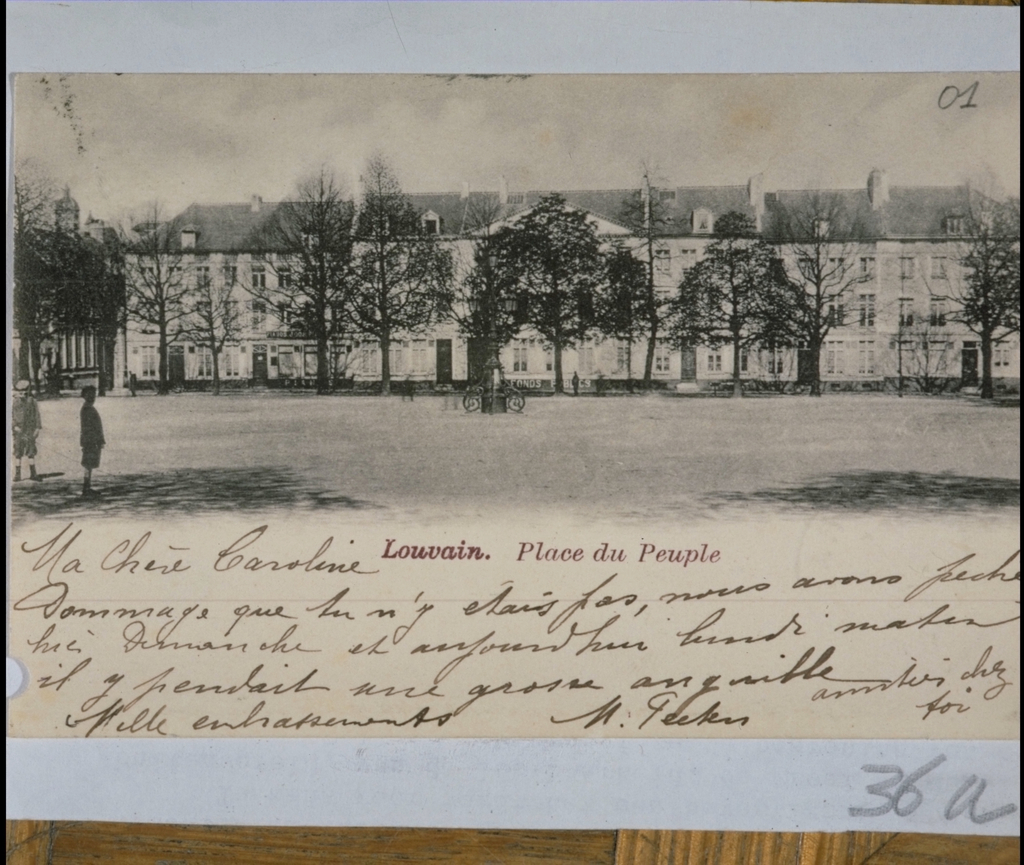 01
FONDS PUBLICS
Louvain. Place du Peuple
Ma Chère Caroline
Dommage que tu n'y étais pas, nous avons peché
hier Dimanche et aujourd'hui lundi matin
il y pendait une grosse anguille
amitiés chez
toi
Mille embrassements M. Peeters
36 a